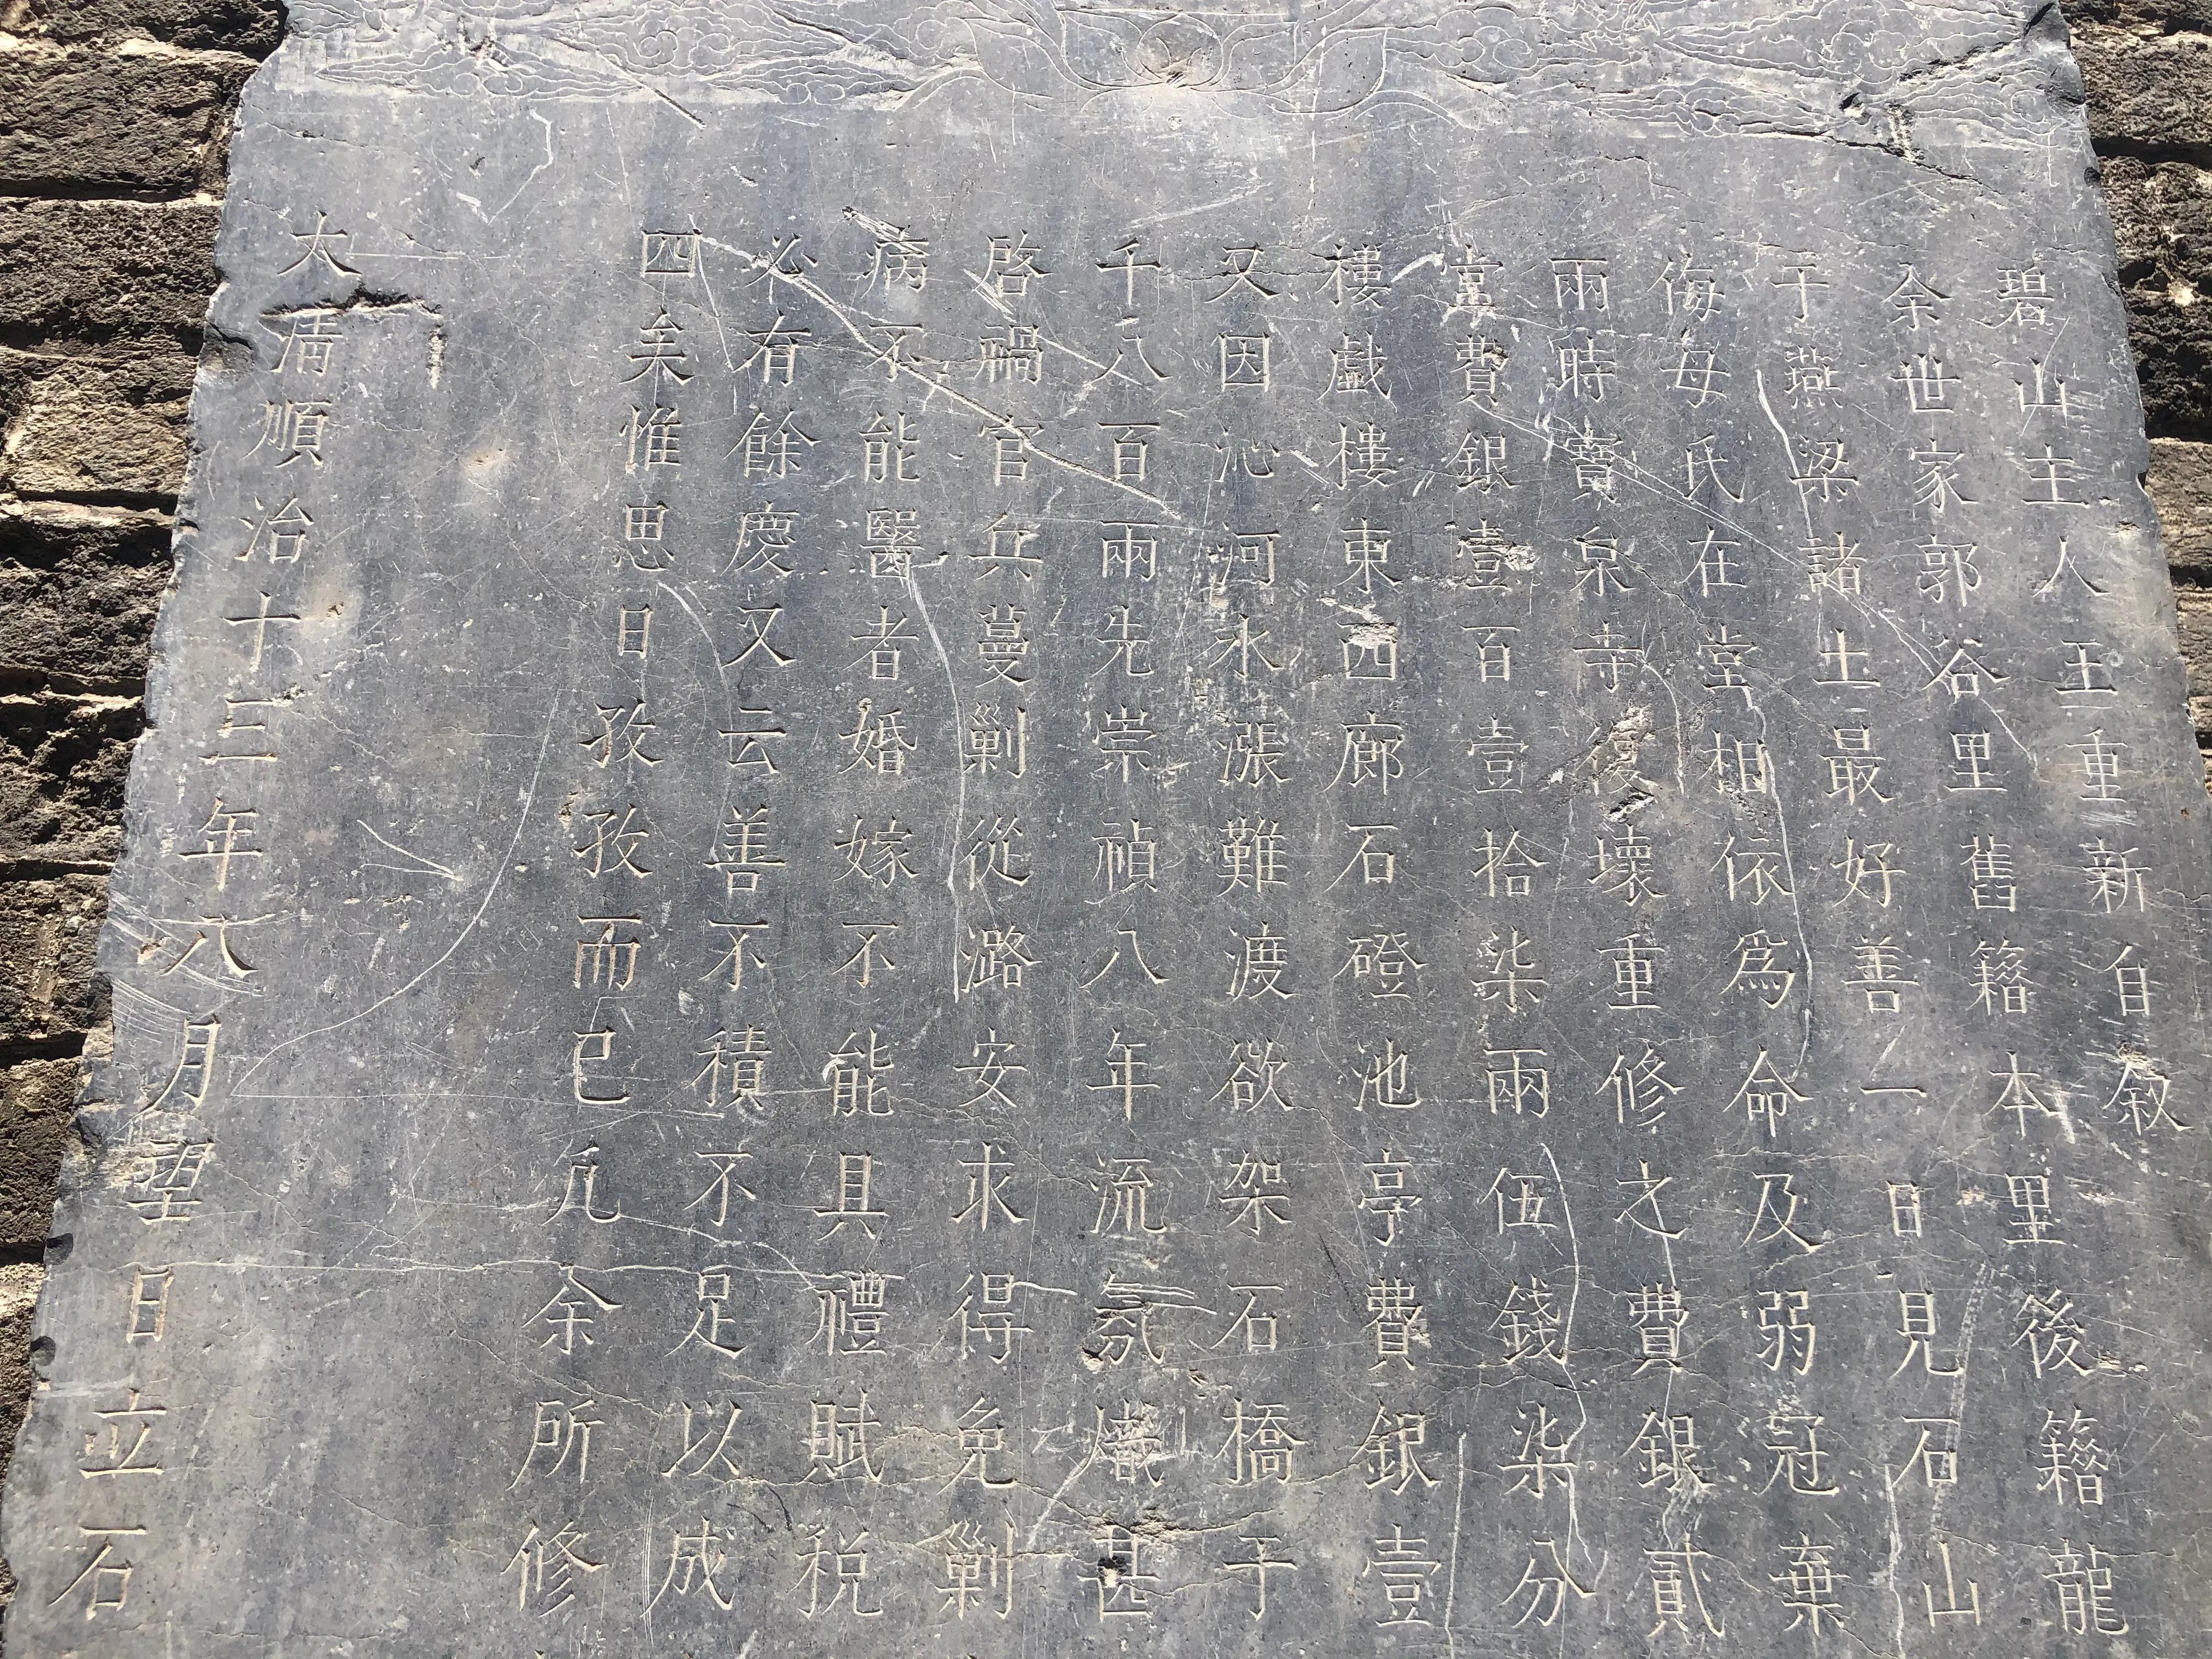 碧山主人王重新自叙
余世家郭谷里舊籍本里後籍龍
于燕梁諸士最好善一日見石山
侮母氏在堂相依爲命及弱冠棄
兩時寶泉寺復壞重修之費銀貳
堂費銀壹百壹拾柒兩伍錢柒分
樓戲樓東西廊石磴池亭費銀壹
又因沁河水漲難渡欲架石橋于
千八百兩先崇禎八年流氛熾甚
啓禍官兵蔓剿從潞安求得免剿
病不能醫者婚嫁不能具禮賦税
必有餘慶又云善不積不足以成
四矣惟思日孜孜而已凢余所修
大清順治十三年八月望日立石